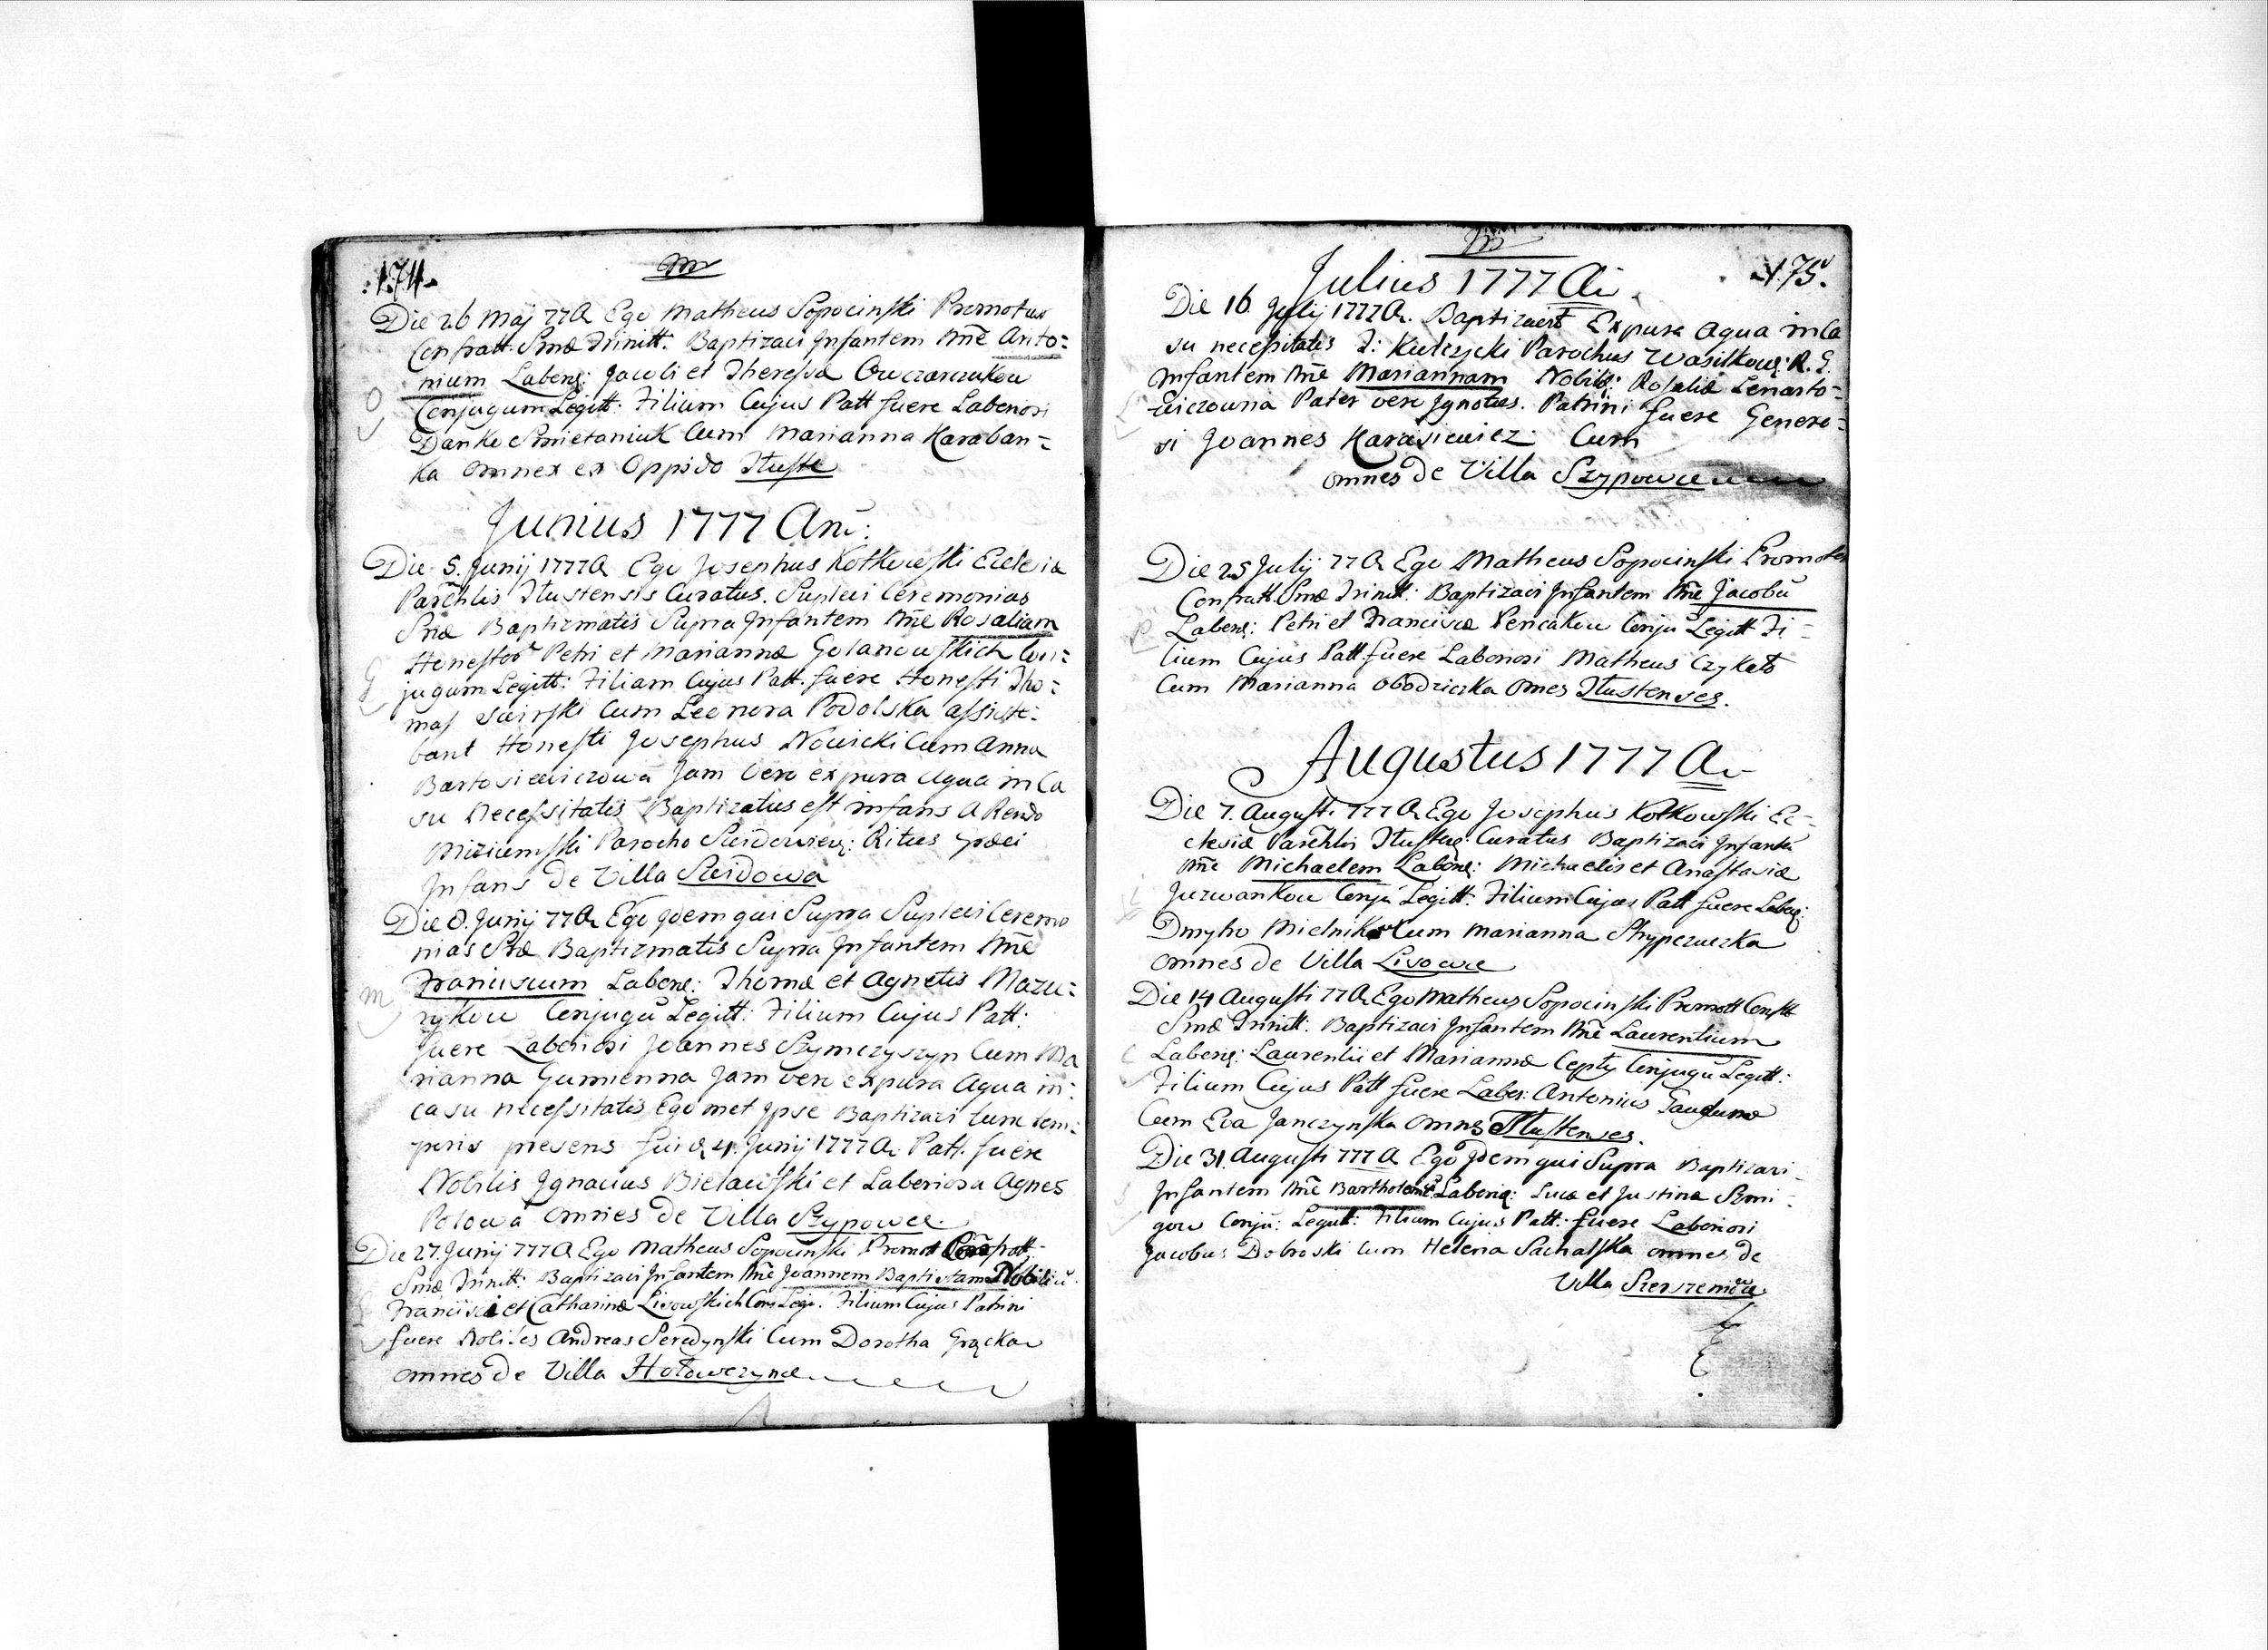 .174.
Die 26 Maij 77A Ego Matheus Sopocinski Promotus
Confratt. Smæ Trinitt: Baptizavi Infantem Nn̄e Anto=
nium Labens: Jacobi et Theressæ Owczarczukow
Conjugum Legitt: Filium Cujus Patt fuere Laboriosi
Danko Smietaniuk Cum Marianna Karaban=
ka omnes ex Oppido Tłuste
Junius 1777 An̄:
Die 5. Junij 1777A Ego Josephus Kotkowski Eclesiæ
Parchlis Tłustensis Curatus. Suplevi Ceremonias
Smæ Baptizmatis Supra Infantem Nn̄e Rosaliam
Honestor Petri et Mariannæ Golanowskich Con=
jugum Legitt: Filiam Cujus Patt. fuere Honesti Tho=
mas Swirski Cum Leonora Podolska assiste=
bant Honesti Josephus Nowicki Cum Anna
Bartosiewiczowa Jam vero ex pura Aqua in Ca
su Necessitatis Baptizatus est infans A Rendo
Parocho
Infans de Villa Szeidowa
Die 8. Junij 77A Ego Idem qui Supra Suplevi Ceremo
nias Smæ Baptizmatis Supra Infantem Nn̄e
Franciscum Labens: Thomæ et Agnetis Mazu=
rykow Conjugū Legitt: Filium Cujus Patt:
fuere Laboriosi Joannes Szymczyszyn Cum Ma
rianna Gumienna Jam vero ex pura Aqua in=
casu necessitatis Egomet Ipse Baptizavi tunc tem=
poris presens fui d 4. Junij 1777A. Patt. fuere
Nobilis Ignacius Bielawski et Laboriosa Agnes
Polowa omnes de Villa Szypowce.
Die 27. Junij 777A Ego Matheus Sopocinski Promot Confratt:
Smæ Trinitt: Baptizavi Infantem Nn̄e Joannem Baptistam Nobiliū
Francisci et Catharinæ Lisowskich Con: Legi: Filium Cujus Patrini
fuere Nobiles Andreas Seredynski Cum Dorotha Grącka
omnes de Villa Hołowczynce
175.
Julius 1777 A
Die 16 Julij 1777A. Baptizavit Ex pura Aqua in Ca
su necessitatis J: Kulczycki Parochus Wasilkow: R. G.
Infantem Nn̄e Mariannam Nobilis: Rosaliæ Lenarto=
wiczowna Pater vero Ignotus. Patrini fuere Genero=
si Joannes Karasiewicz Cum
omnes de Villa Szypowce
Die 25 Julij 77A Ego Matheus Sopocinski Promotus
Confratt. Smæ Trinitt: Baptizavi Infantem Nn̄e Jacobū
Labens: Petri et Franciscæ Pencakow Conjū Legitt Fi=
lium Cujus Patt fuere Laboriosi Matheus Czykało
Cum Marianna Obodziczka omes Tłustenses.
Augustus 1777 A
Die 7. Augusti 777A Ego Josephus Kotkowski Ec=
clesiæ Parchlis Tłusten: Curatus Baptizavi Infantē
Nn̄e Michaelem Labens: Michaelis et Anastasiæ
Jurwankow Conjū Legitt: Filium Cujus Patt fuere Labos:
Dmytro Mielnik Cum Marianna
omnes de Villa Lisowce
Die 14 Augusti 77A Ego Matheus Sopocinski Promott Confatt
Smæ Trinitt: Baptizavi Infantem Nn̄e Laurentium
Labens: Laurentii et Mariannæ Cepty Conjugū Legitt:
Filium Cujus Patt fuere Labor: Antonius
Cum Eva Janczynska omns Tłustenses.
Die 31. Augusti 777A Ego Idem qui Supra Baptizavi
Infantem Nn̄e Bartholomē Laboris: Lucæ et Justinæ Semi=
gow Conjū: Legitt: Filium Cujus Patt: fuere Laboriosi
Jacobus Dobroski Cum Helena Sachalska omnes de
Villa Szerszeniowce